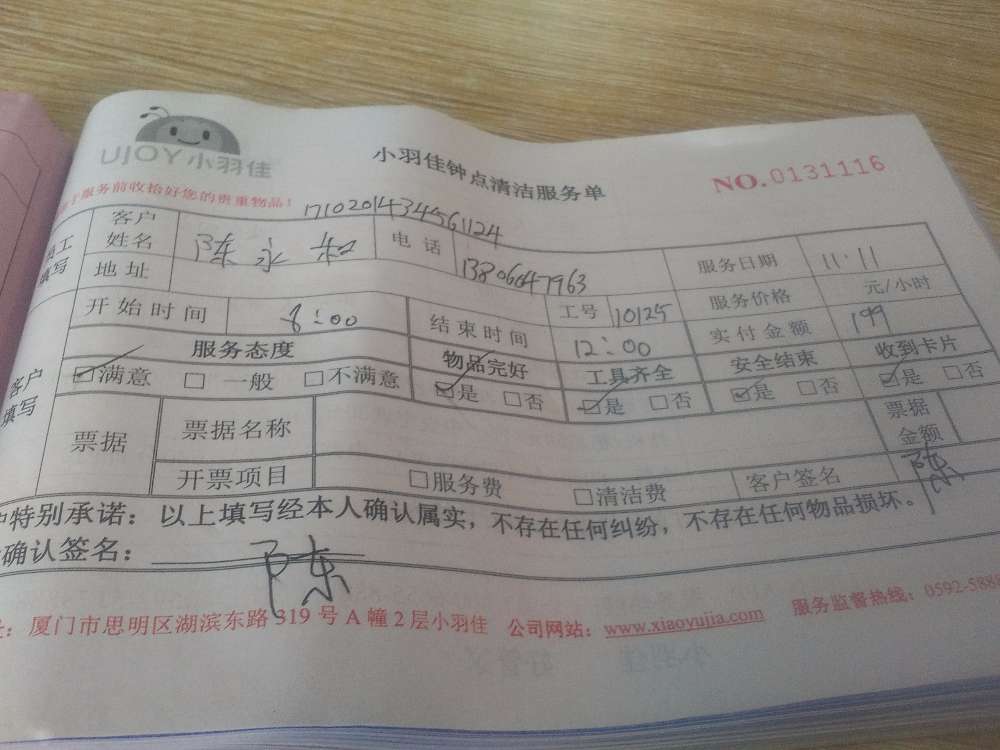 UJOY小羽佳
小羽佳钟点清洁服务单
NO.0131116
服务前收拾好您的贵重物品!
1710201434561124
员工填写
客户姓名 陈永和 电话 13806047963 服务日期 11.11
地址 工号 10125 服务价格 元/小时
客户填写
开始时间 8:00 结束时间 12:00 实付金额 199
服务态度 物品完好 工具齐全 安全结束 收到卡片
☑满意 □一般 □不满意 ☑是 □否 ☑是 □否 ☑是 □否 ☑是 □否
票据 票据名称 票据金额
开票项目 □服务费 □清洁费 客户签名 陈
户特别承诺:以上填写经本人确认属实,不存在任何纠纷,不存在任何物品损坏。
确认签名: 陈
厦门市思明区湖滨东路319号A幢2层小羽佳 公司网站:www.xiaoyujia.com 服务监督热线:0592-588